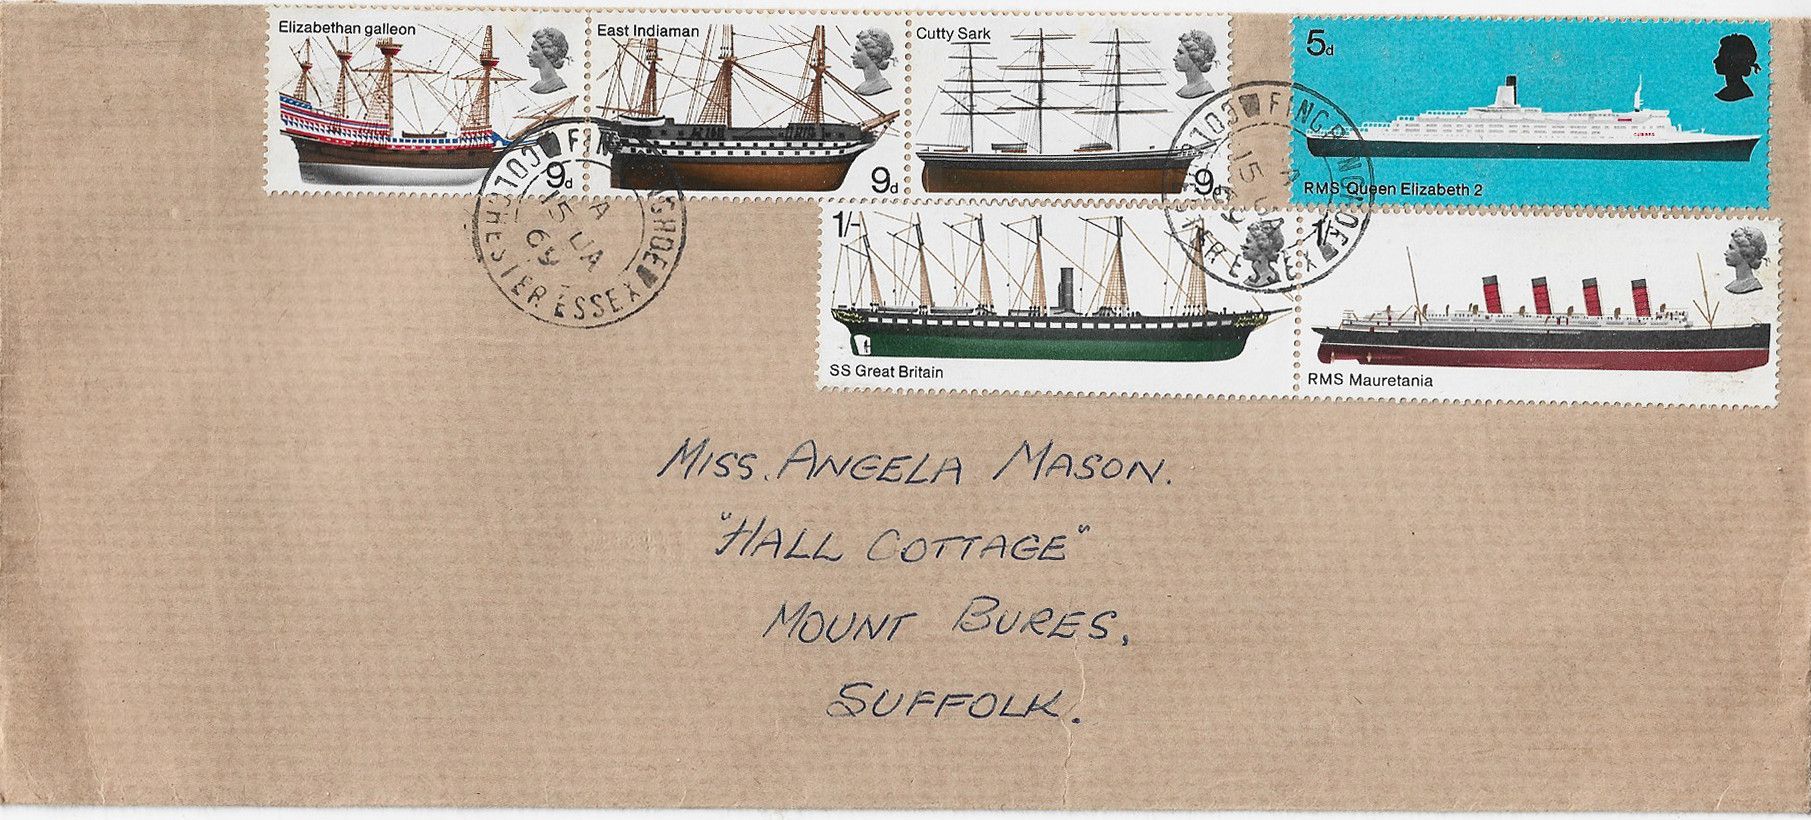 Elizabethan galleon
9d
East Indiaman
9d
Cutty Sark
9d
5d
RMS Queen Elizabeth 2
1/-
SS Great Britain
1/-
RMS Mauretania
FINGRINGHOE
COLCHESTER ESSEX
A
15 JA
69
FINGRINGHOE
COLCHESTER ESSEX
A
15 JA
69
CUNARD
MISS. ANGELA MASON.
"HALL COTTAGE"
MOUNT BURES,
SUFFOLK.